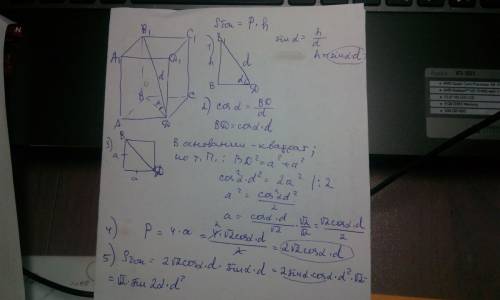 Sбок = P·h
B₁ C₁
A₁ D₁
d
B C
α
A D
1) B₁
h d
α
B D
sin α = h/d
h = sin α·d
2) cos α = BD/d
BD = cos α · d
3) B
a
D
a
В основании - квадрат;
по т. П.: BD² = a² + a²
cos²α·d² = 2a² /:2
a² = cos²α d²/2
a = cos α·d/√2 · √2/√2 = √2 cos α·d/2
4) P = 4·a = 4·√2 cos α·d/2 = 2√2 cos α·d
5) Sбок = 2√2 cos α·d · sin α·d = 2 sin α · cos α · d² · √2 =
= √2 · sin 2α · d²